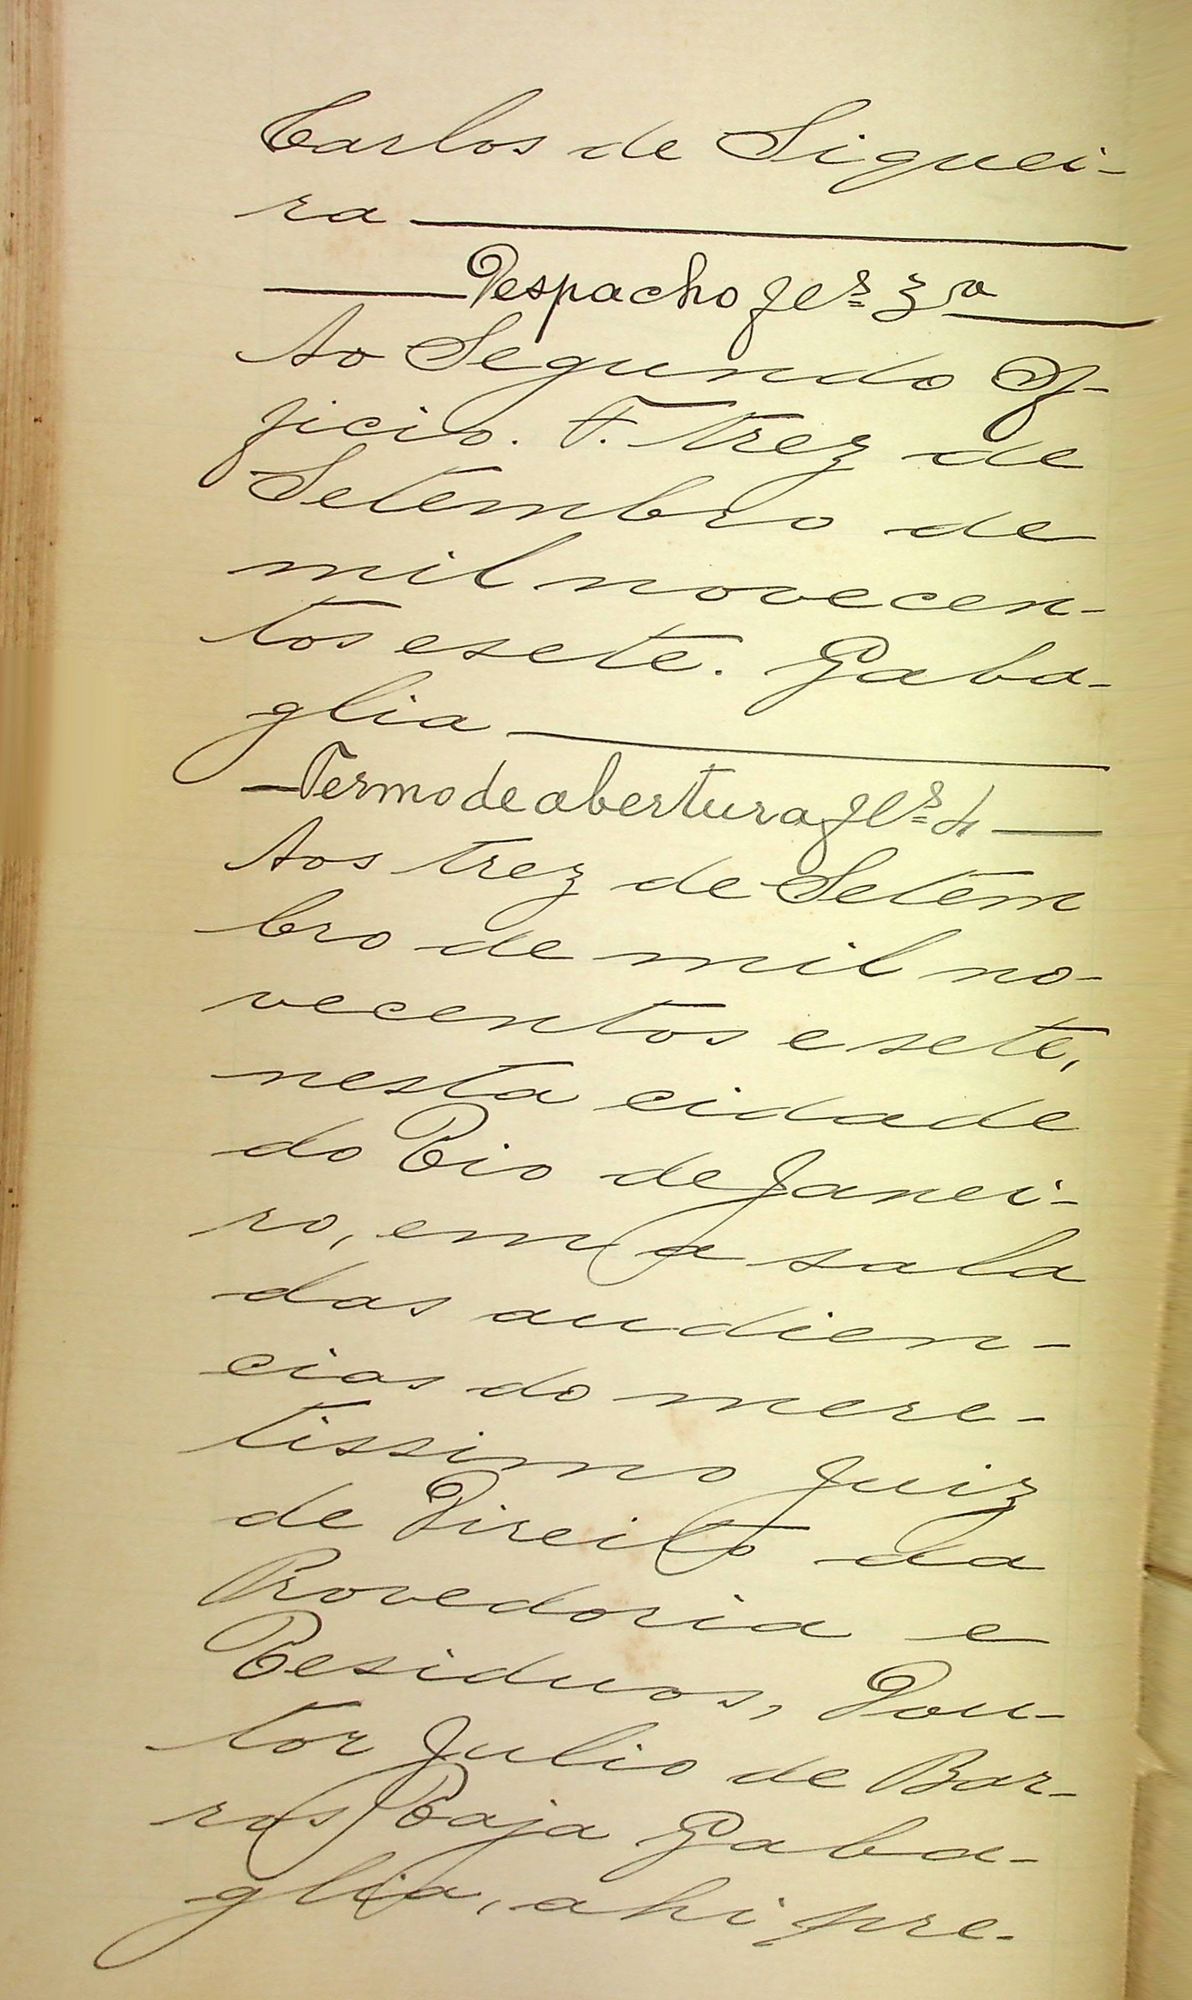 Carlos de Siquei-
ra
Despacho fls 3 vº
Ao Segundo Of-
ficio. F. Trez de
Setembro de
mil novecen-
tos e sete. Gaba-
glia
Termo de abertura fls 4
Aos trez de Setem
bro de mil no-
vecentos e sete,
nesta cidade
do Rio de Janei-
ro, em a sala
das audien-
cias do mere-
tissimo Juiz
de Direito da
Provedoria e
Residuos, Dou-
tor Julio de Bar-
ros Raja Gaba-
glia, ahi pre-